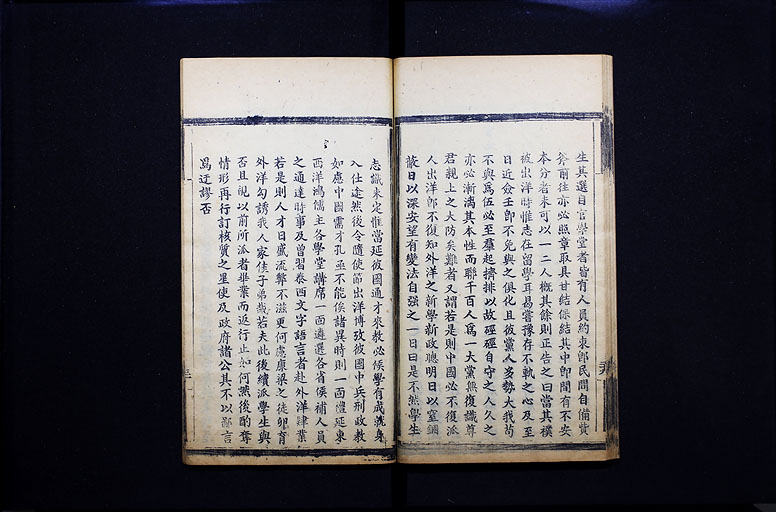 生其選自官學堂者皆有人員約束卽民間自備貲
斧前往亦必照章取具甘結保結其中卽間有不安
本分者未可以一二人槪其餘則正告之曰當其樸
被出洋時惟志在留學耳曷嘗豫存不軌之心及至
日近僉壬卽不免與之俱化且彼黨人多勢大我苟
不與爲伍必至羣起擠排以故硜硜自守之人久之
亦必漸漓其本性而聯千百人爲一大黨無復識尊
君親上之大防矣難者又謂若是則中國必不復派
人出洋卽不復知外洋之新學新政聰明日以窒錮
蔽日以深安望有變法自强之一日曰是不然學生
志識未定惟當延彼國通才來教必候學有成就身
入仕途然後令隨使節出洋博攷彼國中兵刑政教
如慮中國需才孔亟不能俟諸異時則一面禮延東
西洋鴻儒主各學堂講席一面遴選各省候補人員
之通達時事及曾習泰西文字語言者赴外洋肄業
若是則人才日盛流弊不滋更何慮康梁之徒卵育
外洋勾誘我人家佳子弟哉若夫此後續派學生與
否且視以前所派者畢業而返行止如何然後酌奪
情形再行訂核質之星使及政府諸公其不以鄙言
爲迂謬否